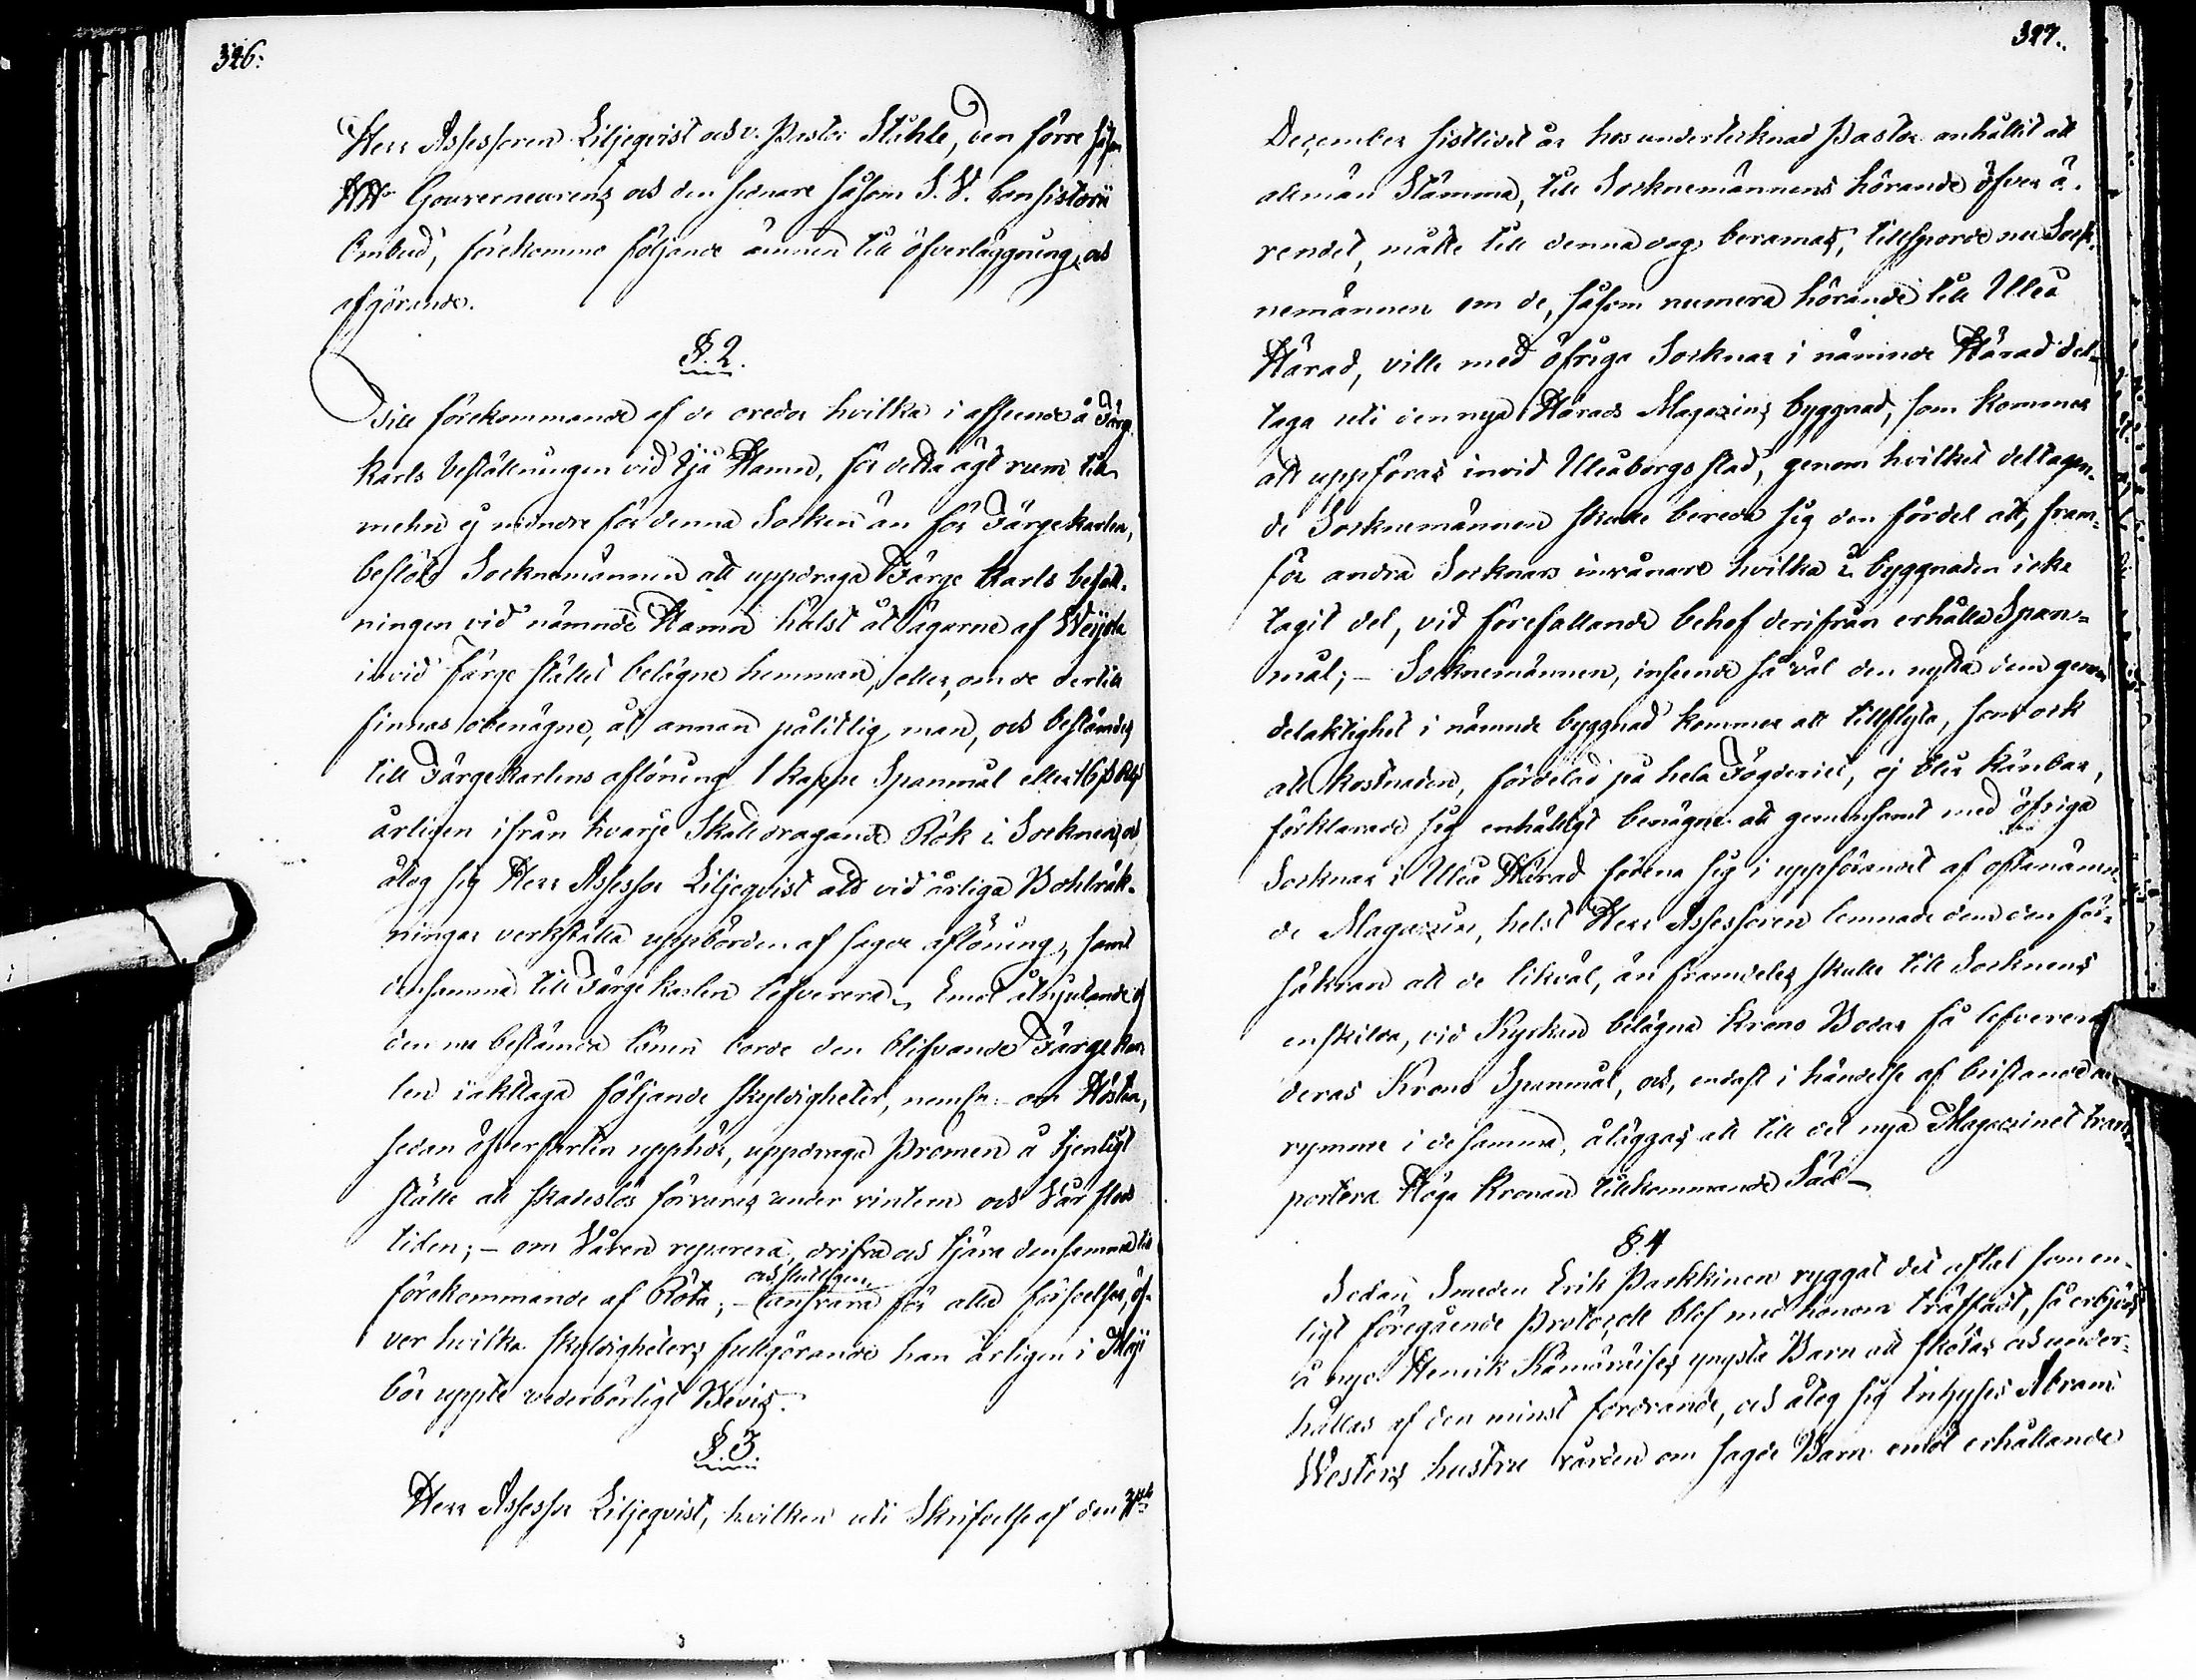 326.
Herr Assessoren Liljeqvist och v. Pastor Ståhle, den förre såsom
Gouverneurens och den sednare såsom S. V. Consistorii
Ombud, förekommo följande ämnen till öfverläggning och
afgörande.
§. 2.
Till förekommande af de oredor hvilka i afseende å Färge
karls beställningen vid Hamn, för detta ägt rum till
mehn ej mindre för denna Socken än för Färgekarlen,
beslöto Socknemännen att uppdraga Färge Karls beställ-
ningen vid nämnde Hamn hälst åt ägarne af
invid Färge stället belägne hemman, eller, om de dertill
finnas obenägne, åt annan pålitlig man, och bestämdes
till Färgekarlens aflöning 1 kappe Spanmål eller
årligen ifrån hvarje Skattdragande Rök i Socknen, och
åtog sig Herr Assessor Liljeqvist att vid årliga Bohlräk-
ningar verkställa uppbörden af sagde aflöning, samt
densamma till Färgekarlen lefverera. Emot åtnjutande af
den nu bestämda lönen borde den blifvande Färgekar
len iakttaga följande skyldigheter, nemln. om Hösten,
sedan öfverfarten upphör, uppdraga Pråmen å tjenligt
ställe att skadeslös förvaras under vintern och Vårflods
tiden; – om Våren reparera, drifva och tjära densamma till
förekommande af Röta; – och slutligen ansvara för alla förseelser, öf-
ver hvilka skyldigheters fullgörande han årligen i Maji
bör uppte vederbörligt Bevis.
§. 3.
Herr Assessor Liljeqvist, hvilken uti Skrifvelse af den
327.
December sistledit år hos undertecknad Pastor anhållit att
allmän Stämma, till Socknemännens hörande öfver ä-
rendet, måtte till denna dag beramas, tillsporde nu Sock-
nemännen om de, såsom numera hörande till Uleå
Härad, ville med öfriga Socknar i nämnde Härad del-
taga uti den nya Härads Magazins byggnad, som kommer
att uppföras invid Uleåborgs stad, genom hvilket deltagan-
de Socknemännen skulle bereda sig den fördel att, fram-
för andra Socknars invånare hvilka i byggnaden icke
tagit del, vid förefallande behof derifrån erhålla Span-
mål; – Socknemännen, inseende så väl den nytta dem genom
delaktighet i nämnde byggnad kommer att tillflyta, som ock
att kostnaden, fördelad på hela Fögderiet, ej blir känbar,
förklarade sig enhälligt benägne att gemensamt med öfriga
Socknar i Uleå Härad förena sig i uppförandet af oftanämn-
de Magazin, helst Herr Assessoren lemnade dem den för-
säkran att de likväl, än framdeles skulle till Socknens
enskilda, vid Kyrkan belägna Krono Bodar få lefverera
deras Krono Spanmål, och, endast i händelse af bristande
rymme i de samma, åläggas att till det nya Magazinet trans-
portera Höga Kronan tillkommande Säd. –
§. 4
Sedan Smeden Erik Parkkinen ryggat det aftal som en-
ligt föregående Protocoll blef med honom träffadt, så erbjöds
å nyo Henrik Kämäräises yngsta Barn att skötas och under-
hållas af den minst fordrande, och åtog sig Inhyses Abram
Westers hustru vården om sagde Barn emot erhållande